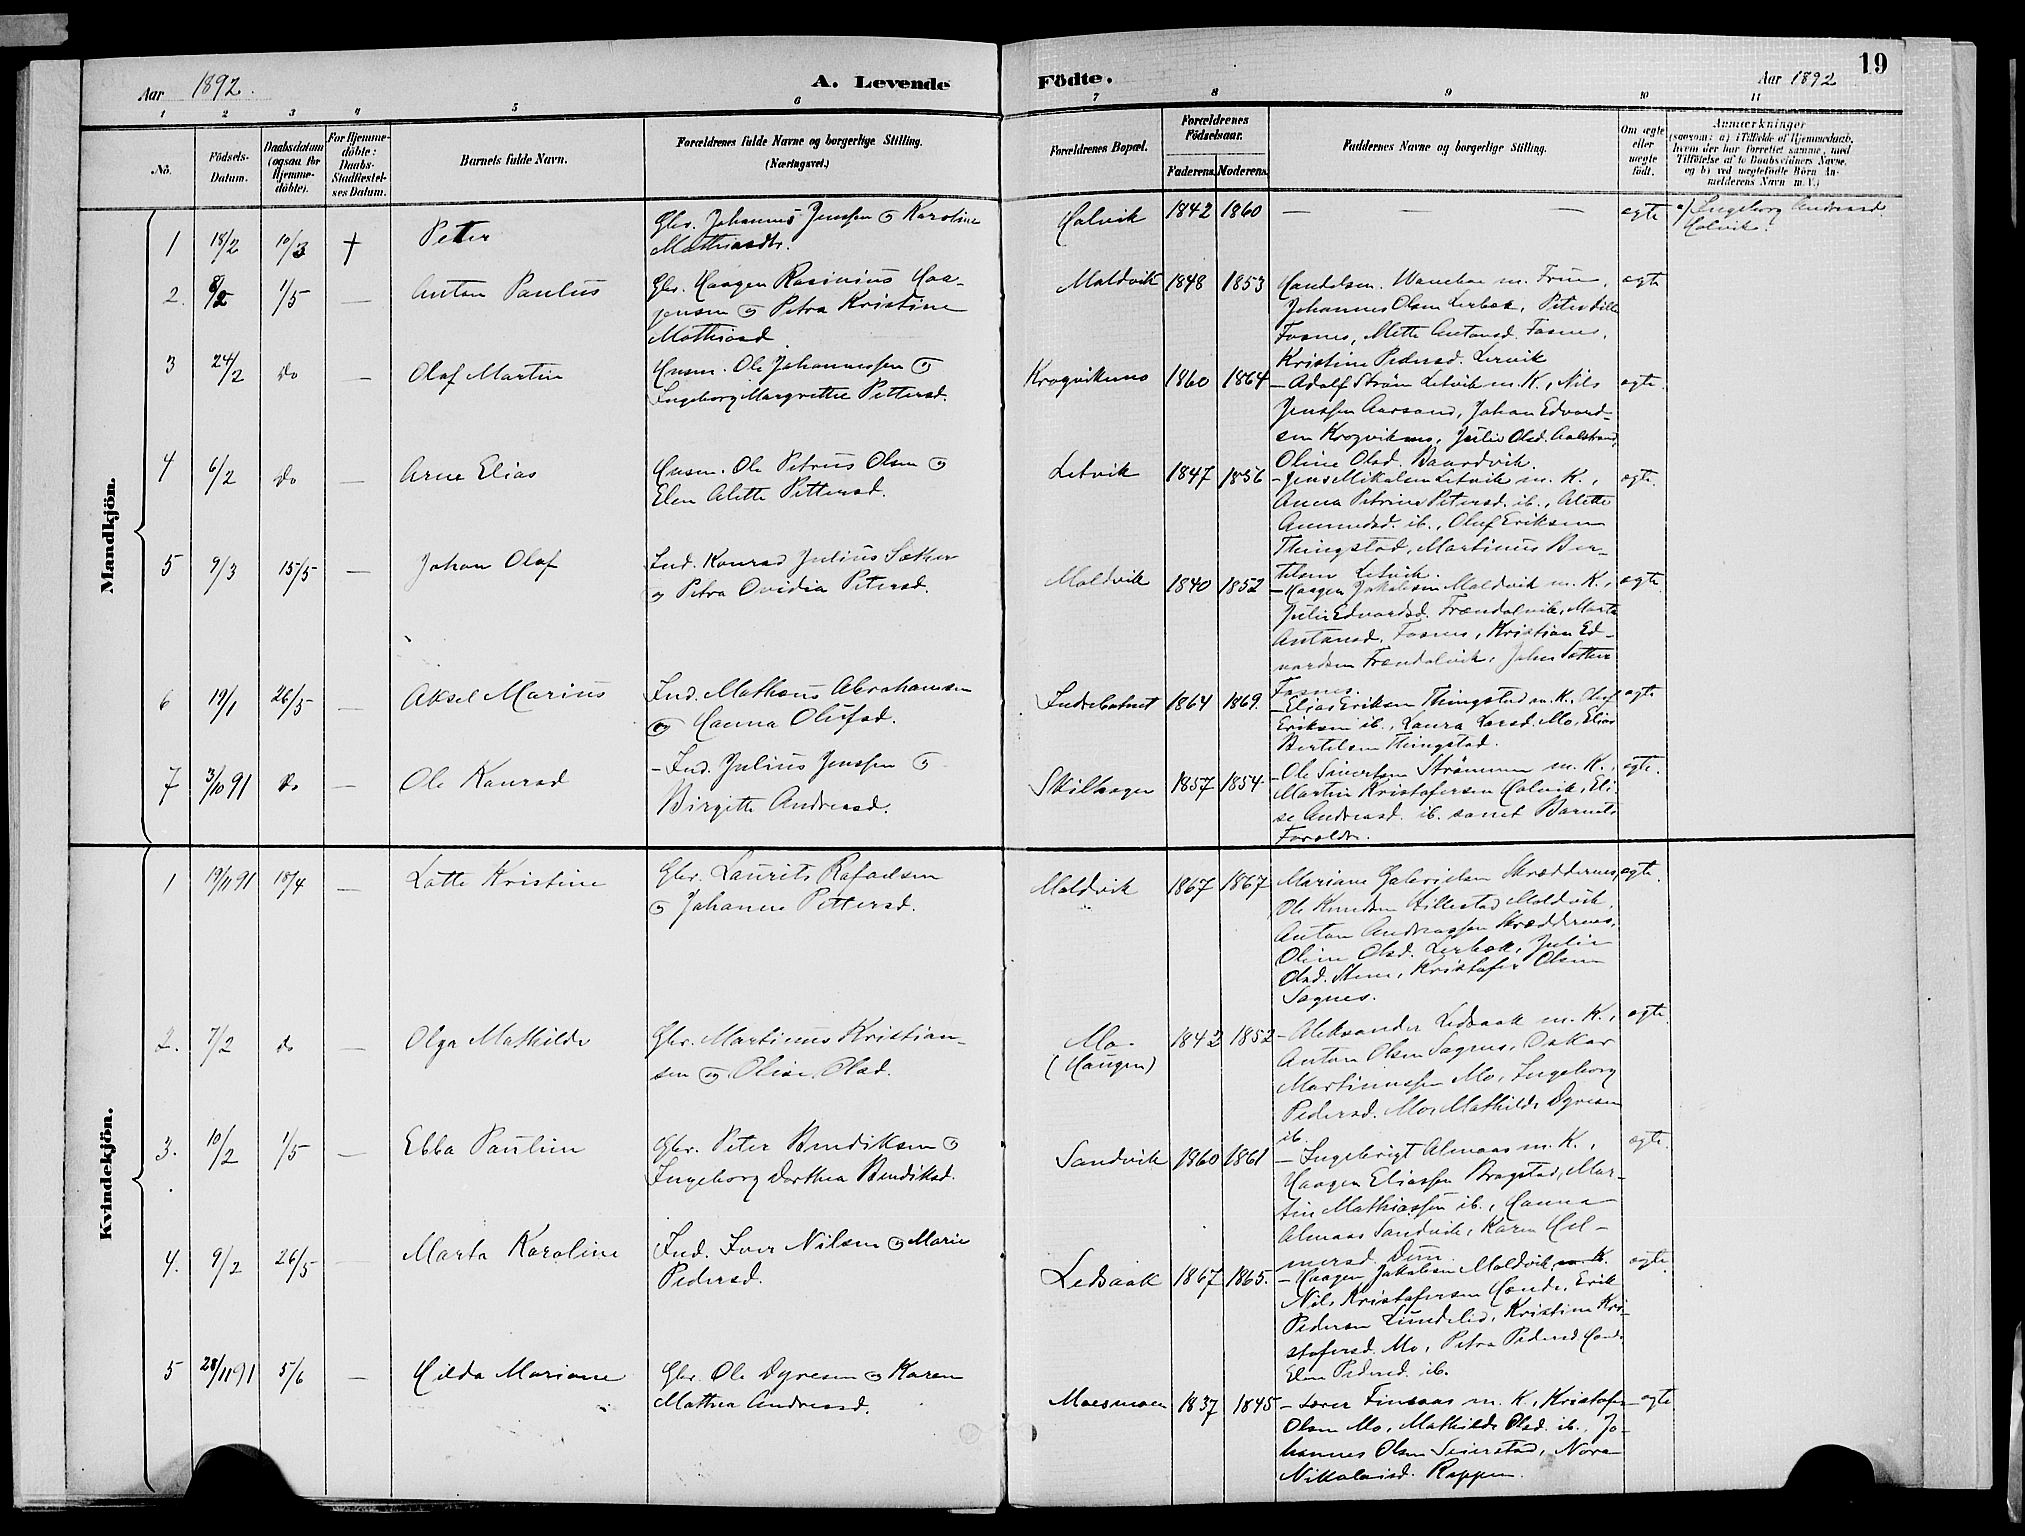 19
Aar 1892.
A. Levende
Födte.
Aar 1892
1 2 3 4 5 6 7 8 9 10 11
No.
Födsels-Datum.
Daabsdatum (ogsaa for Hjemme-döbte).
For Hjemme-döbte: Daabs-Stadfæstel-ses Datum.
Barnets fulde Navn.
Forældrenes fulde Navne og borgerlige Stilling.
(Næringsvei.)
Forældrenes Bopæl.
Forældrenes Födselsaar.
Faderens. Moderens.
Faddernes Navne og borgerlige Stilling.
Om ægte eller uægte födt.
Anmærkninger
(saasom: a) i Tilfælde af Hjemmedaab, hvem der har forrettet samme, med Tilföielse af to Daabsvidners Navne, og b) ved uægtefödte Börn An-melderens Navn m. V.)
Mandkjön.
1 18/2 10/3 † Peter
Gbr. Johannes Jenssen og Karoline
Mathiasdtr.
Calvik 1842 1860 — — — ægte
a) Ingeborg Andreasd
Calvik.
2. 8/2 1/5 — Anton Paulus
Gbr. Haagen Rasinius Haa-
gensen og Petra Kristine
Mathiasd
Moldvik 1848 1853
Handelsm. Wannebo m. Frue,
Johannes Olsen Lerbæk, Peter Dille
Fosnes, Mette Antonsd. Fosnes,
Kristine Pedersd. Lervik
ægte
3 24/2 Do — Olaf Martin
Husm. Ole Johannessen og
Ingeborg Margrethe Pettersd.
Krogvikmo 1860 1864
— Adolf Strøm Letvik m. K., Nils
Jenssen Aarsand, Johan Edvard-
sen Krogvikmo, Julie Olsd. Aalstrand,
Oline Olsd. Baardvik.
ægte.
4 6/2 Do — Arne Elias
Husm. Ole Petrus Olsen og
Elen Alette Pettersd.
Letvik 1847 1856
— Jens Mikalsen Letvik m. K.,
Anna Petrine Petersd. ib., Alette
Ammundsd. ib., Oluf Eriksen
Thingstad, Martinus Ber-
telsen Letvik.
ægte.
5 9/3 15/5 — Johan Olaf
Ind. Konrad Julius Sæther
og Petra Ovidia Petersd.
Moldvik 1840 1852
— Haagen Jakobsen Moldvik m. K.,
Julie Edvardsd. Frændalvik, Marta
Antonsd. Fosnes, Kristian Ed-
vardsen Frændalvik, John Sæther
Fosnes.
ægte.
6 19/1 26/5 — Aksel Marius
Ind. Mathæus Abrahamsen
og Hanna Olufsd.
Indrebotnet 1864 1869.
— Elias Eriksen Thingstad m. K., Oluf
Eriksen ib., Laura Larsd. Mo, Elias
Bertelsen Thingstad.
ægte
7 3/10 91 Do — Ole Konrad
— Ind. Julius Jenssen og
Birgitte Andreasd.
Skilhagen 1857 1854
— Ole Sivertsen Strømmen m. K.,
Martin Kristofersen Calvik, Eli-
se Andreasd. ib. samt Barnets
Forældre.
ægte.
Kvindekjön.
1 19/11 91 18/4 — Lotte Kristine
Gbr. Laurits Rafaelsen
og Johanne Pettersd.
Moldvik 1867 1867
Mariane Gabrielsen Skræddernes,
Ole Knudsen Hillestad Moldvik,
Anton Andreassen Skræddernes,
Oline Olsd. Lerbæk, Julie
Olsd. Stene, Kristofer Olsen
Sagnes.
ægte.
2. 7/2 do — Olga Mathilde
Gbr. Martinus Kristian-
sen og Olise Olsd.
Mo.
(Haugen) 1842 1852
— Aleksander Ledsaak m. K.,
Anton Olsen Sagnes, Oskar
Martinussen Mo, Ingeborg
Pedersd. Mo, Mathilde Dyresen
ib.
ægte.
3. 10/2 1/5 — Ebba Pauline
Gbr. Peter Bendiksen og
Ingeborg Dorthea Bendiksd.
Sandvik 1860 1861
— Ingebrigt Almaas m. K.,
Haagen Eliassen Bragstad, Mar-
tin Mathiassen ib., Hanna
Almaas Sandvik, Karen Hil-
mersd. Dun.
ægte.
4. 9/2 26/5 — Marta Karoline
Ind. Iver Nilsen og Marie
Pedersd.
Ledsaak 1867 1865.
— Haagen Jakobsen Moldvik m. K.
Nils Kristofersen Hande, Erik
Pedersen Lundelid, Kristine Kri-
stofersd. Mo, Petra Pedersd. Hande
Elen Pedersd. ib.
ægte.
5 28/11 91 5/6 — Hilda Mariane
Gbr. Ole Dyresen og Karen
Mathea Andreasd.
Moesmoen 1837 1845
— Lærer Finsaas m. K, Kristofer
Olsen Mo, Mathilde Olsd. ib., Jo-
hannes Olsen Seierstad, Nora
Nikolaisd. Rappen.
— ægte